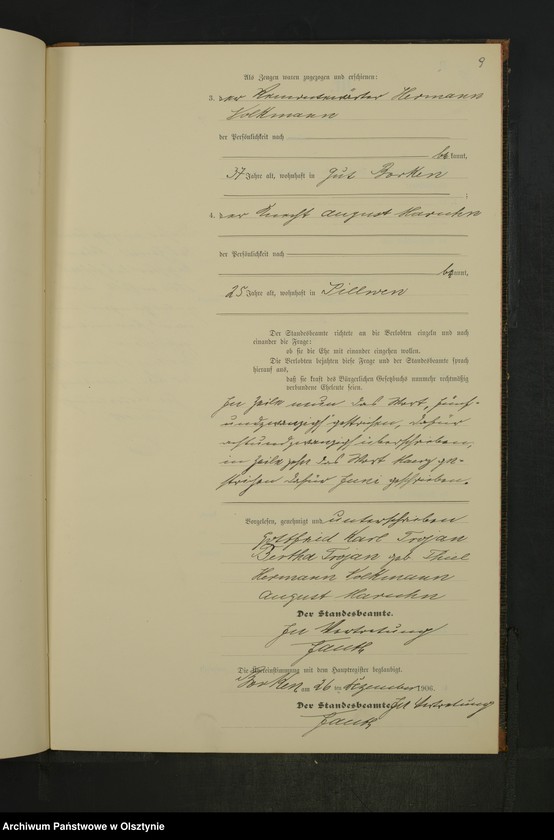 9
Als Zeugen waren zugezogen und erschienen:
3. der Hermann
Volkmann
der Persönlichkeit nach
bekannt,
37 Jahre alt, wohnhaft in Gut Borken
;
4. der Knecht August Maruhn
der Persönlichkeit nach
bekannt,
25 Jahre alt, wohnhaft in Sillwen
Der Standesbeamte richtete an die Verlobten einzeln und nach
einander die Frage:
ob sie die Ehe mit einander eingehen wollen.
Die Verlobten bejahten diese Frage und der Standesbeamte sprach
hierauf aus,
daß sie kraft des Bürgerlichen Gesetzbuchs nunmehr rechtmäßig
verbundene Eheleute seien.
In Zeile neun das Wort „fünf-
undzwanzig" gestrichen, dafür
achtundzwanzig überschrieben,
in Zeile zehn das Wort ge-
strichen dafür Juni geschrieben.
Vorgelesen, genehmigt und unterschrieben
Gottfried Karl Trojan
Bertha Trojan geb. Thiel
Hermann Volkmann
August Maruhn
Der Standesbeamte.
In Vertretung
Die Übereinstimmung mit dem Hauptregister beglaubigt.
Borken am 26 ten Dezember 1906.
Der Standesbeamte. In Vertretung
Archiwum Państwowe w Olsztynie